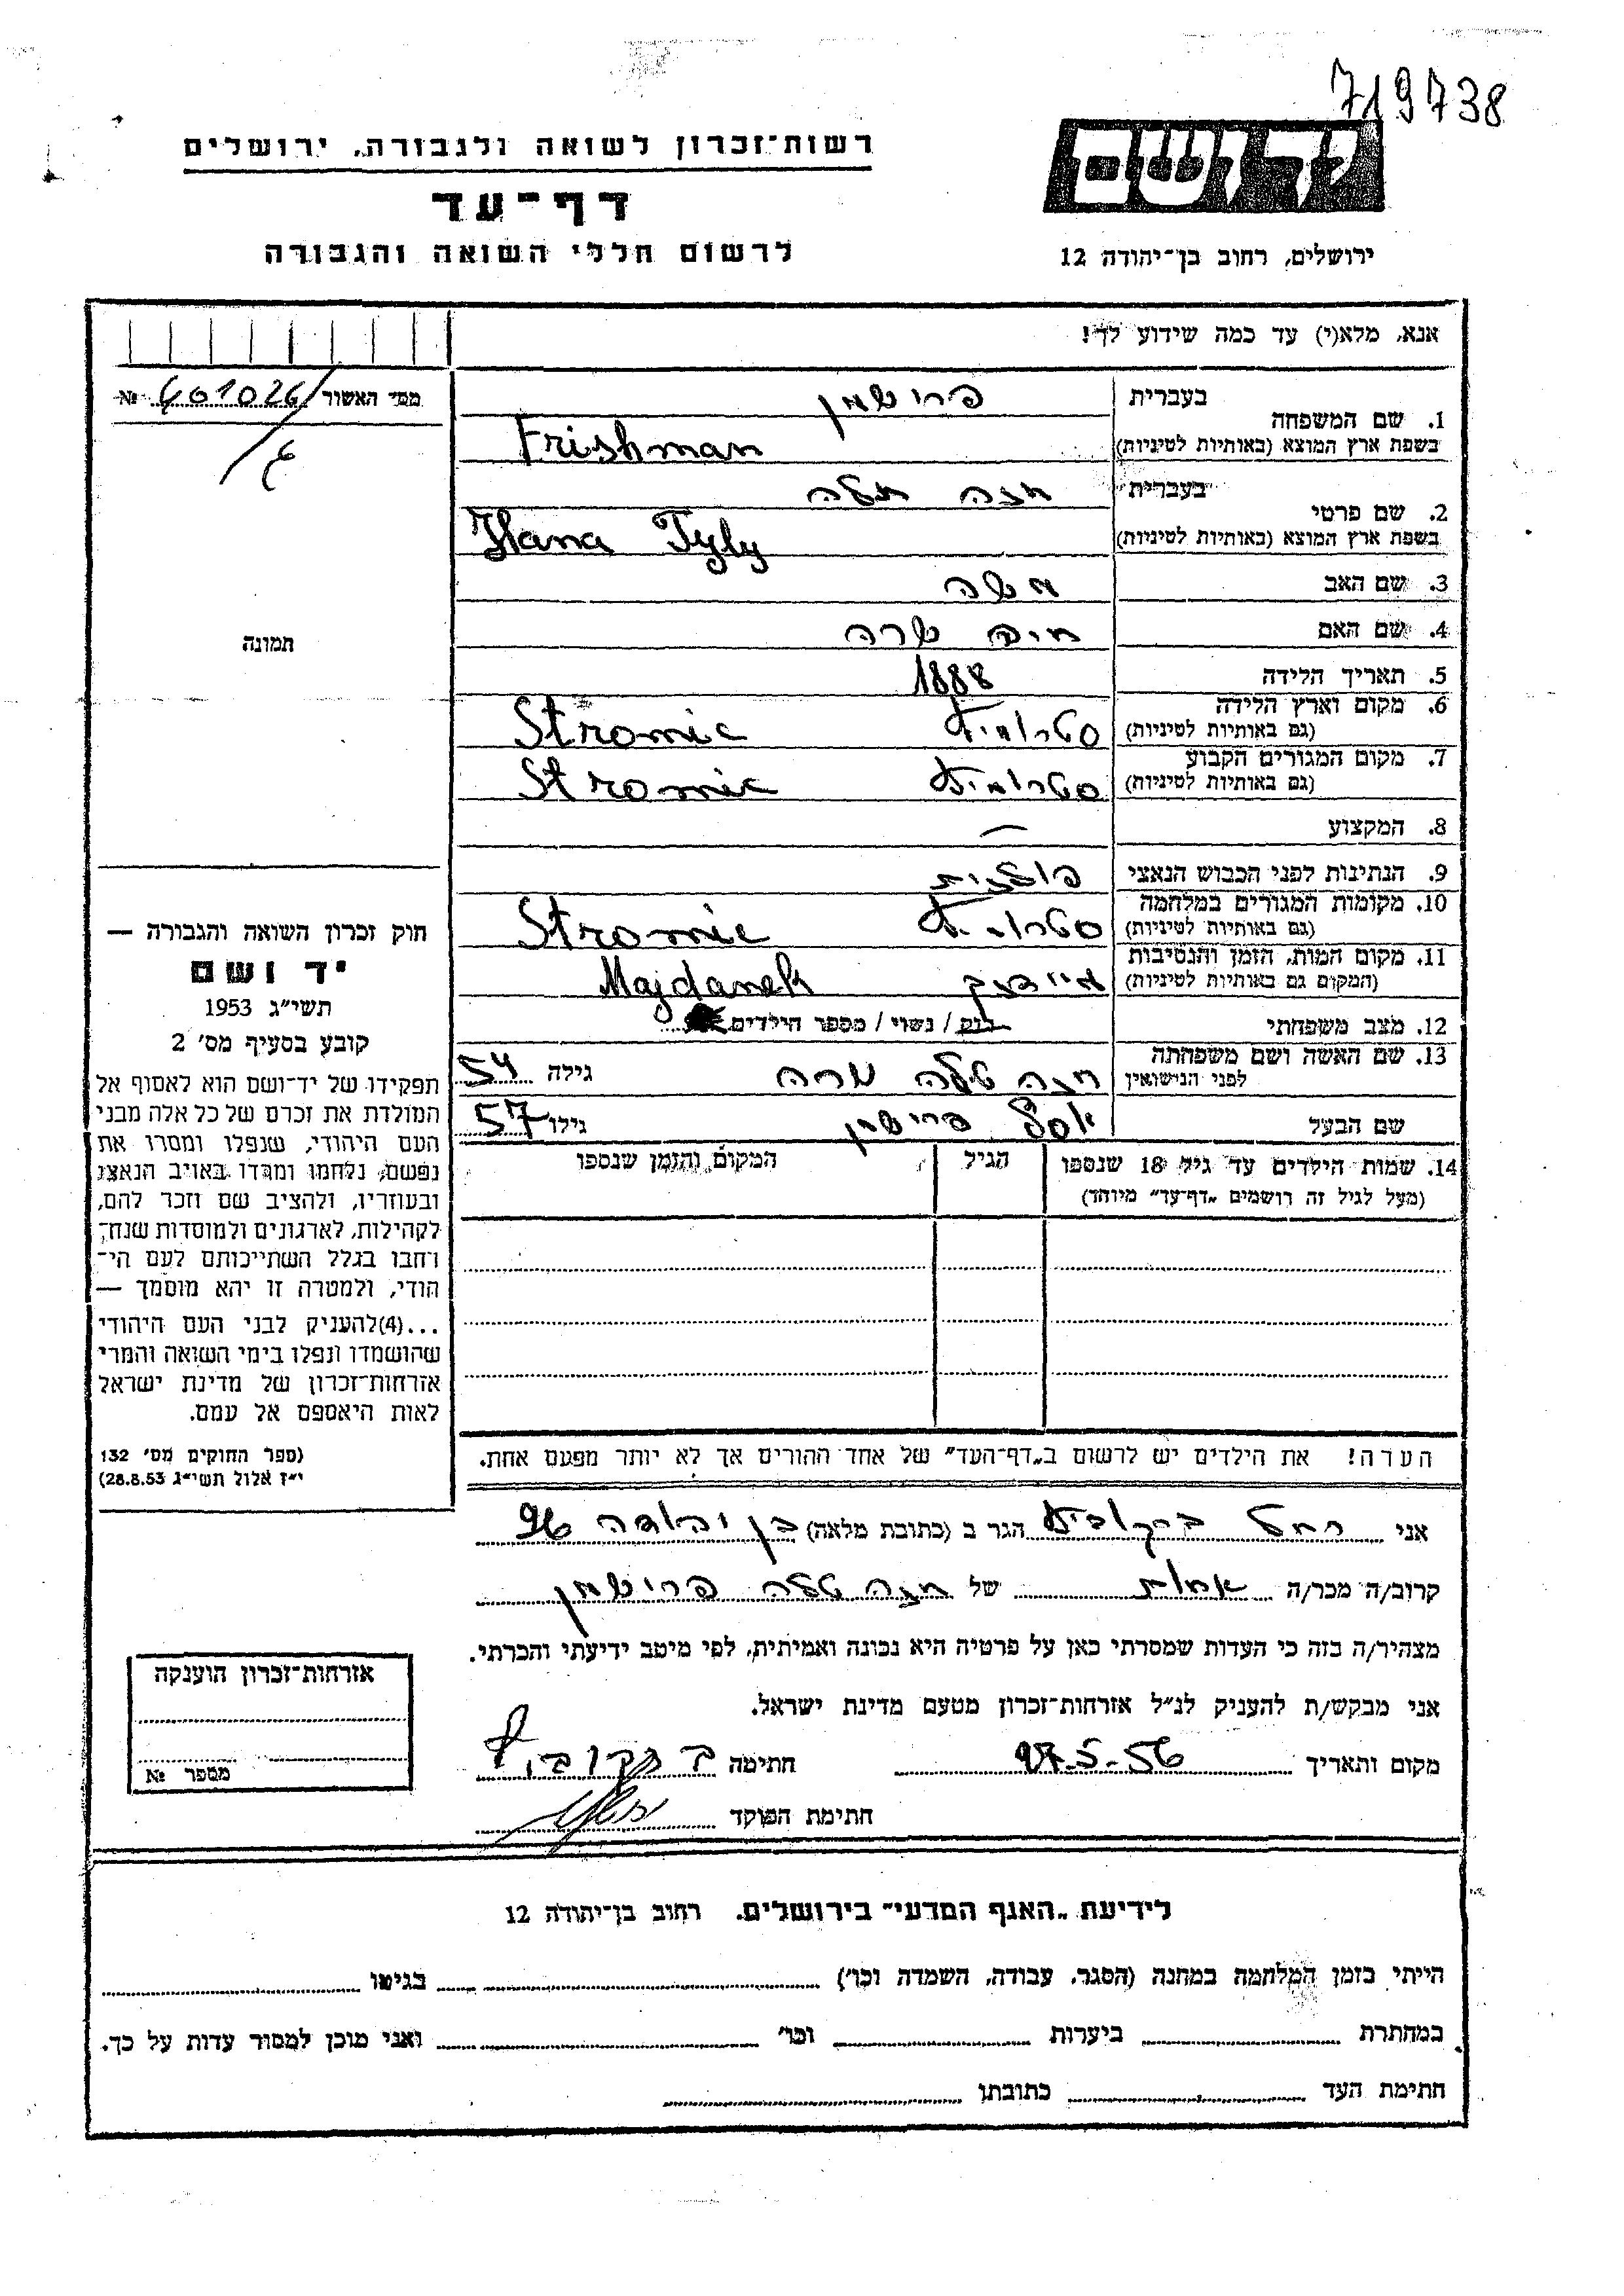 719738
יד ושם
ירושלים, רחוב בן־יהודה 12
רשות־זכרון לשואה ולגבורה, ירושלים
דף־עד
לרשום חללי השואה והגבורה
אנא, מלא(י) עד כמה שידוע לך!
מס׳ האשור № 601026
1. שם המשפחה
בעברית פרישמן
בשפת ארץ המוצא (באותיות לטיניות) Frishman
2. שם פרטי
בעברית חנה
בשפת ארץ המוצא (באותיות לטיניות) Hana Tyly
3. שם האב משה
4. שם האם חיה שרה
5. תאריך הלידה 1888
6. מקום וארץ הלידה
(גם באותיות לטיניות) Stromic
7. מקום המגורים הקבוע
(גם באותיות לטיניות) Stromic
8. המקצוע —
9. הנתינות לפני הכבוש הנאצי פולנית
10. מקומות המגורים במלחמה
(גם באותיות לטיניות) Stromic
11. מקום המות, הזמן והנסיבות
(המקום גם באותיות לטיניות) Majdanek
12. מצב משפחתי רוק / נשוי / מספר הילדים
13. שם האשה ושם משפחתה
לפני הנישואין חנה טילה גילה 54
שם הבעל יוסף פרישמן גילו 57
14. שמות הילדים עד גיל 18 שנספו
(מעל לגיל זה רושמים „דף־עד״ מיוחד)
הגיל
המקום והזמן שנספו
הערה! את הילדים יש לרשום ב„דף־העד״ של אחד ההורים אך לא יותר מפעם אחת.
תמונה
חוק זכרון השואה והגבורה —
יד ושם
תשי״ג 1953
קובע בסעיף מס׳ 2
תפקידו של יד־ושם הוא לאסוף אל
המולדת את זכרם של כל אלה מבני
העם היהודי, שנפלו ומסרו את
נפשם, נלחמו ומרדו באויב הנאצי
ובעוזריו, ולהציב שם וזכר להם,
לקהילות, לארגונים ולמוסדות שנח־
רחבו בגלל השתייכותם לעם הי־
הודי, ולמטרה זו יהא מוסמך —
...(4)להעניק לבני העם היהודי
שהושמדו ונפלו בימי השואה והמרי
אזרחות־זכרון של מדינת ישראל
לאות היאספם אל עמם.
(ספר החוקים מס׳ 132
י״ז אלול תשי״ג 28.8.53)
אני רחל ברקוביץ הגר ב (כתובת מלאה) בן יהודה 96
קרוב/ה מכר/ה אחות של חנה טילה פרישמן
מצהיר/ה בזה כי העדות שמסרתי כאן על פרטיה היא נכונה ואמיתית, לפי מיטב ידיעתי והכרתי.
אני מבקש/ת להעניק לנ״ל אזרחות־זכרון מטעם מדינת ישראל.
מקום ותאריך 27-5-56 חתימה
חתימת הפוקד
אזרחות־זכרון הוענקה
מספר №
לידיעת „האגף המדעי״ בירושלים. רחוב בן־יהודה 12
הייתי בזמן המלחמה במחנה (הסגר, עבודה, השמדה וכו׳) בגיטו
במחתרת ביערות וכו׳ ואני מוכן למסור עדות על כך.
חתימת העד כתובתו